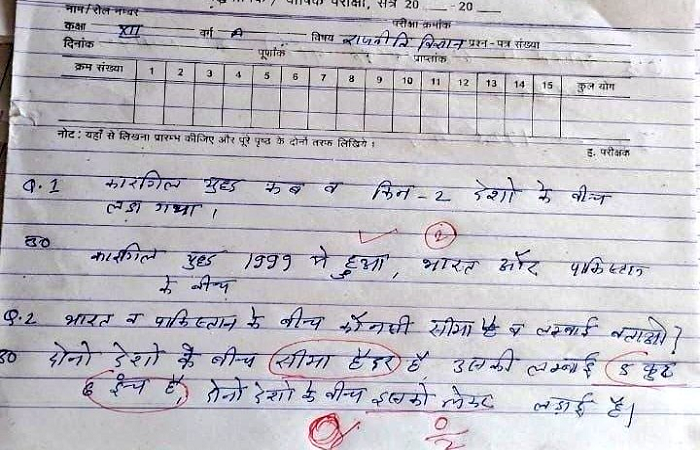 वार्षिक परीक्षा, सत्र 20 -20
नाम/रोल नम्बर परीक्षा क्रमांक
कक्षा XII वर्ग A विषय राजनीति विज्ञान प्रश्न-पत्र संख्या
दिनांक पूर्णांक प्राप्तांक
क्रम संख्या 1 2 3 4 5 6 7 8 9 10 11 12 13 14 15 कुल योग
नोट: यहाँ से लिखना प्रारम्भ कीजिए और पूरे पृष्ठ के दोनों तरफ लिखिये।
ह. परीक्षक
Q.1 कारगिल युद्ध कब व किन-2 देशो के बीच
लड़ा गया।
2
उ० कारगिल युद्ध 1999 मे हुआ, भारत और पाकिस्तान
के बीच
Q.2 भारत व पाकिस्तान के बीच कौनसी सीमा है व लम्बाई बताओ?
उ० दोनो देशो के बीच सीमा हैदर है, उसकी लम्बाई 5 फुट
6 ईंच है, दोनो देशो के बीच इसको लेकर लड़ाई है।
0
0/2